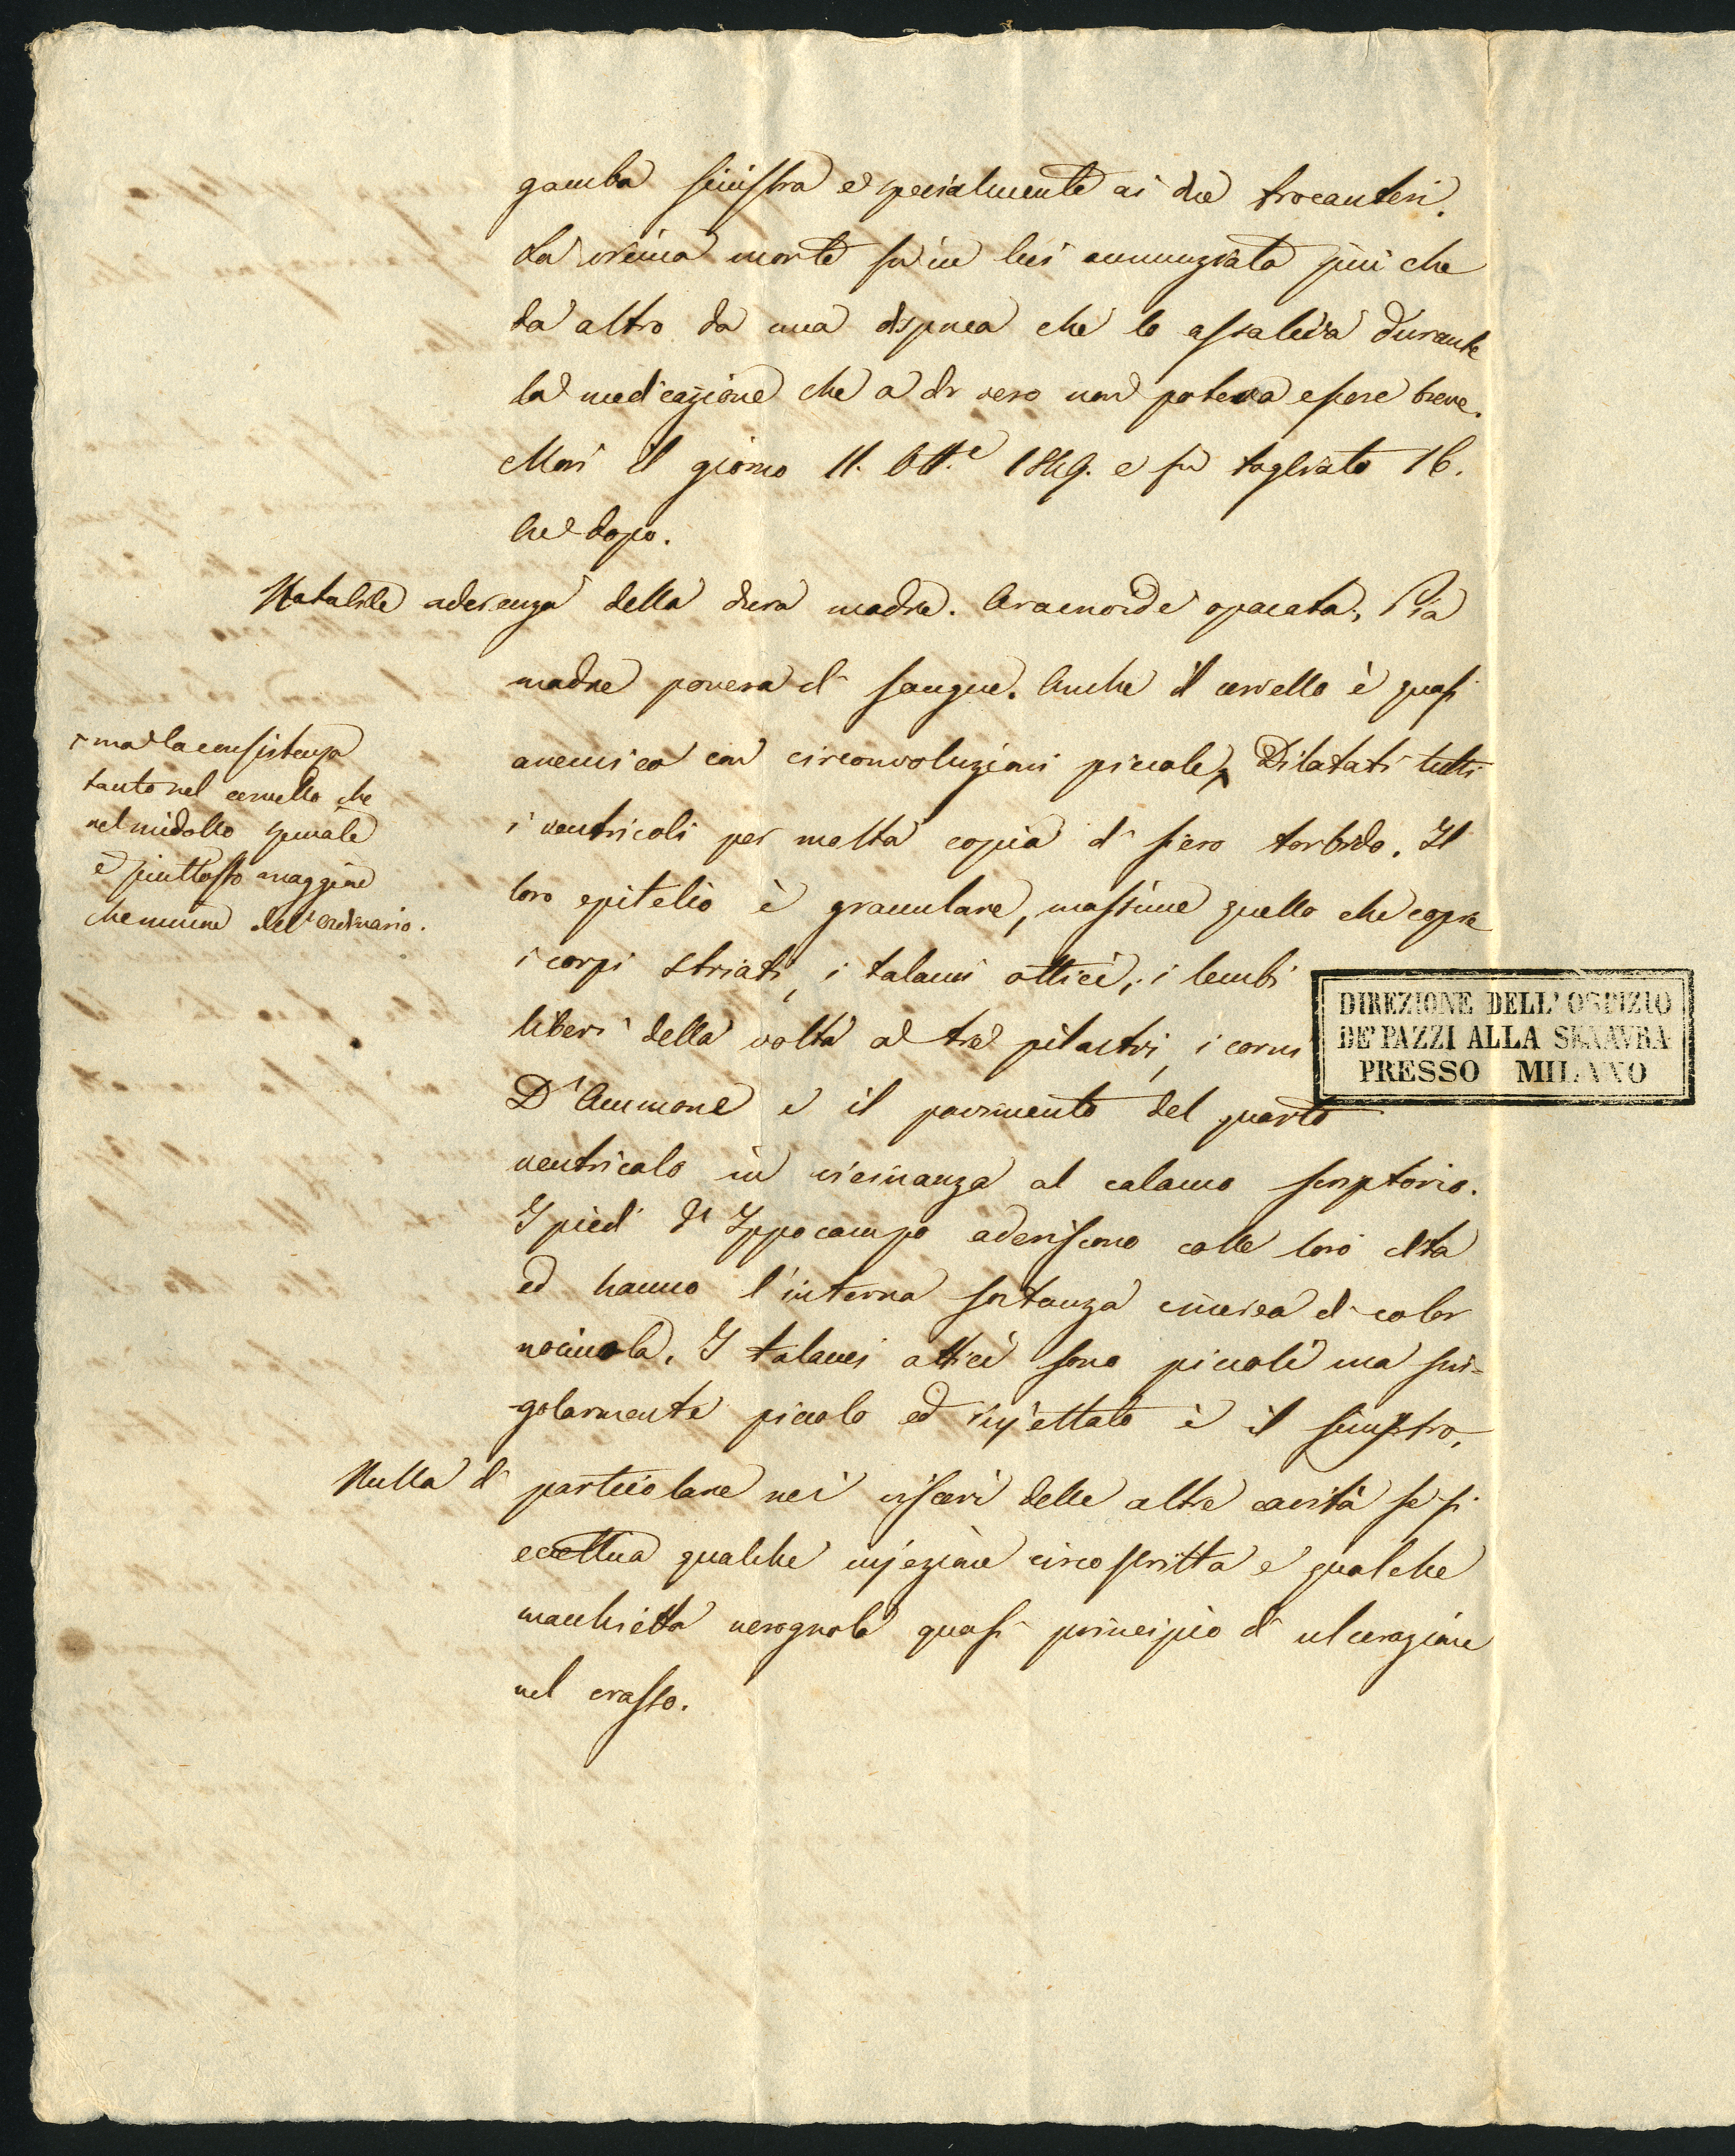 gamba sinistra e specialmente ai due trocanteri.
La vicina morte fu in lui annunziata più che
da altro da una dispnea che lo assaliva durante
la medicazione che a dir vero non poteva essere breve.
Morì il giorno 11. Ott.e 1849. e fu tagliato 16.
h.e dopo.
Notabile aderenza della dura madre. Aracnoide opacata, Pia
madre povera di sangue. Anche il cervello è quasi
anemico con circonvoluzioni piccole, Dilatati tutti
i ventricoli per molta copia di siero torbido. Il
loro epitelio è granulare, massime quello che copre
i corpi striati, i talami ottici, i lembi
liberi della volta a tre pilastri, i corni
D'Ammone e il pavimento del quarto
ventricolo in vicinanza al calamo scriptorio.
I piedi d'Ippocampo aderiscono colle loro dita
ed hanno l'interna sostanza cinerea di color
nocciuola. I talami ottici sono piccoli ma sin-
golarmente piccolo ed è il sinistro,
Nulla di particolare nei visceri delle altre cavità se si
eccettua qualche injezione circoscritta e qualche
macchietta nerognola quasi principio di ulcerazione
nel crasso.
ma la consistenza
tanto nel cervello che
nel midollo spinale
è piuttosto maggiore
che minore dell'ordinario.
DIREZIONE DELL' OSPIZIO
DE' PAZZI ALLA SENAVRA
PRESSO MILANO